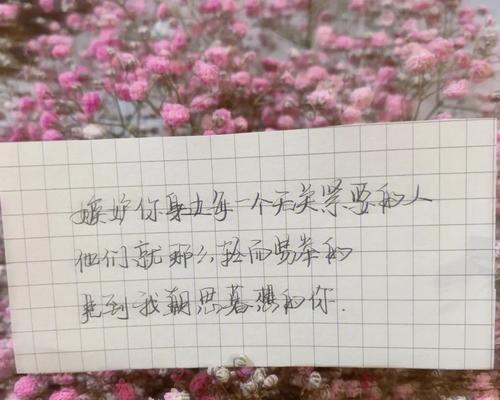 嫉妒你身边每一个无关紧要的人
他们就那么轻而易举的
见到我朝思暮想的你.